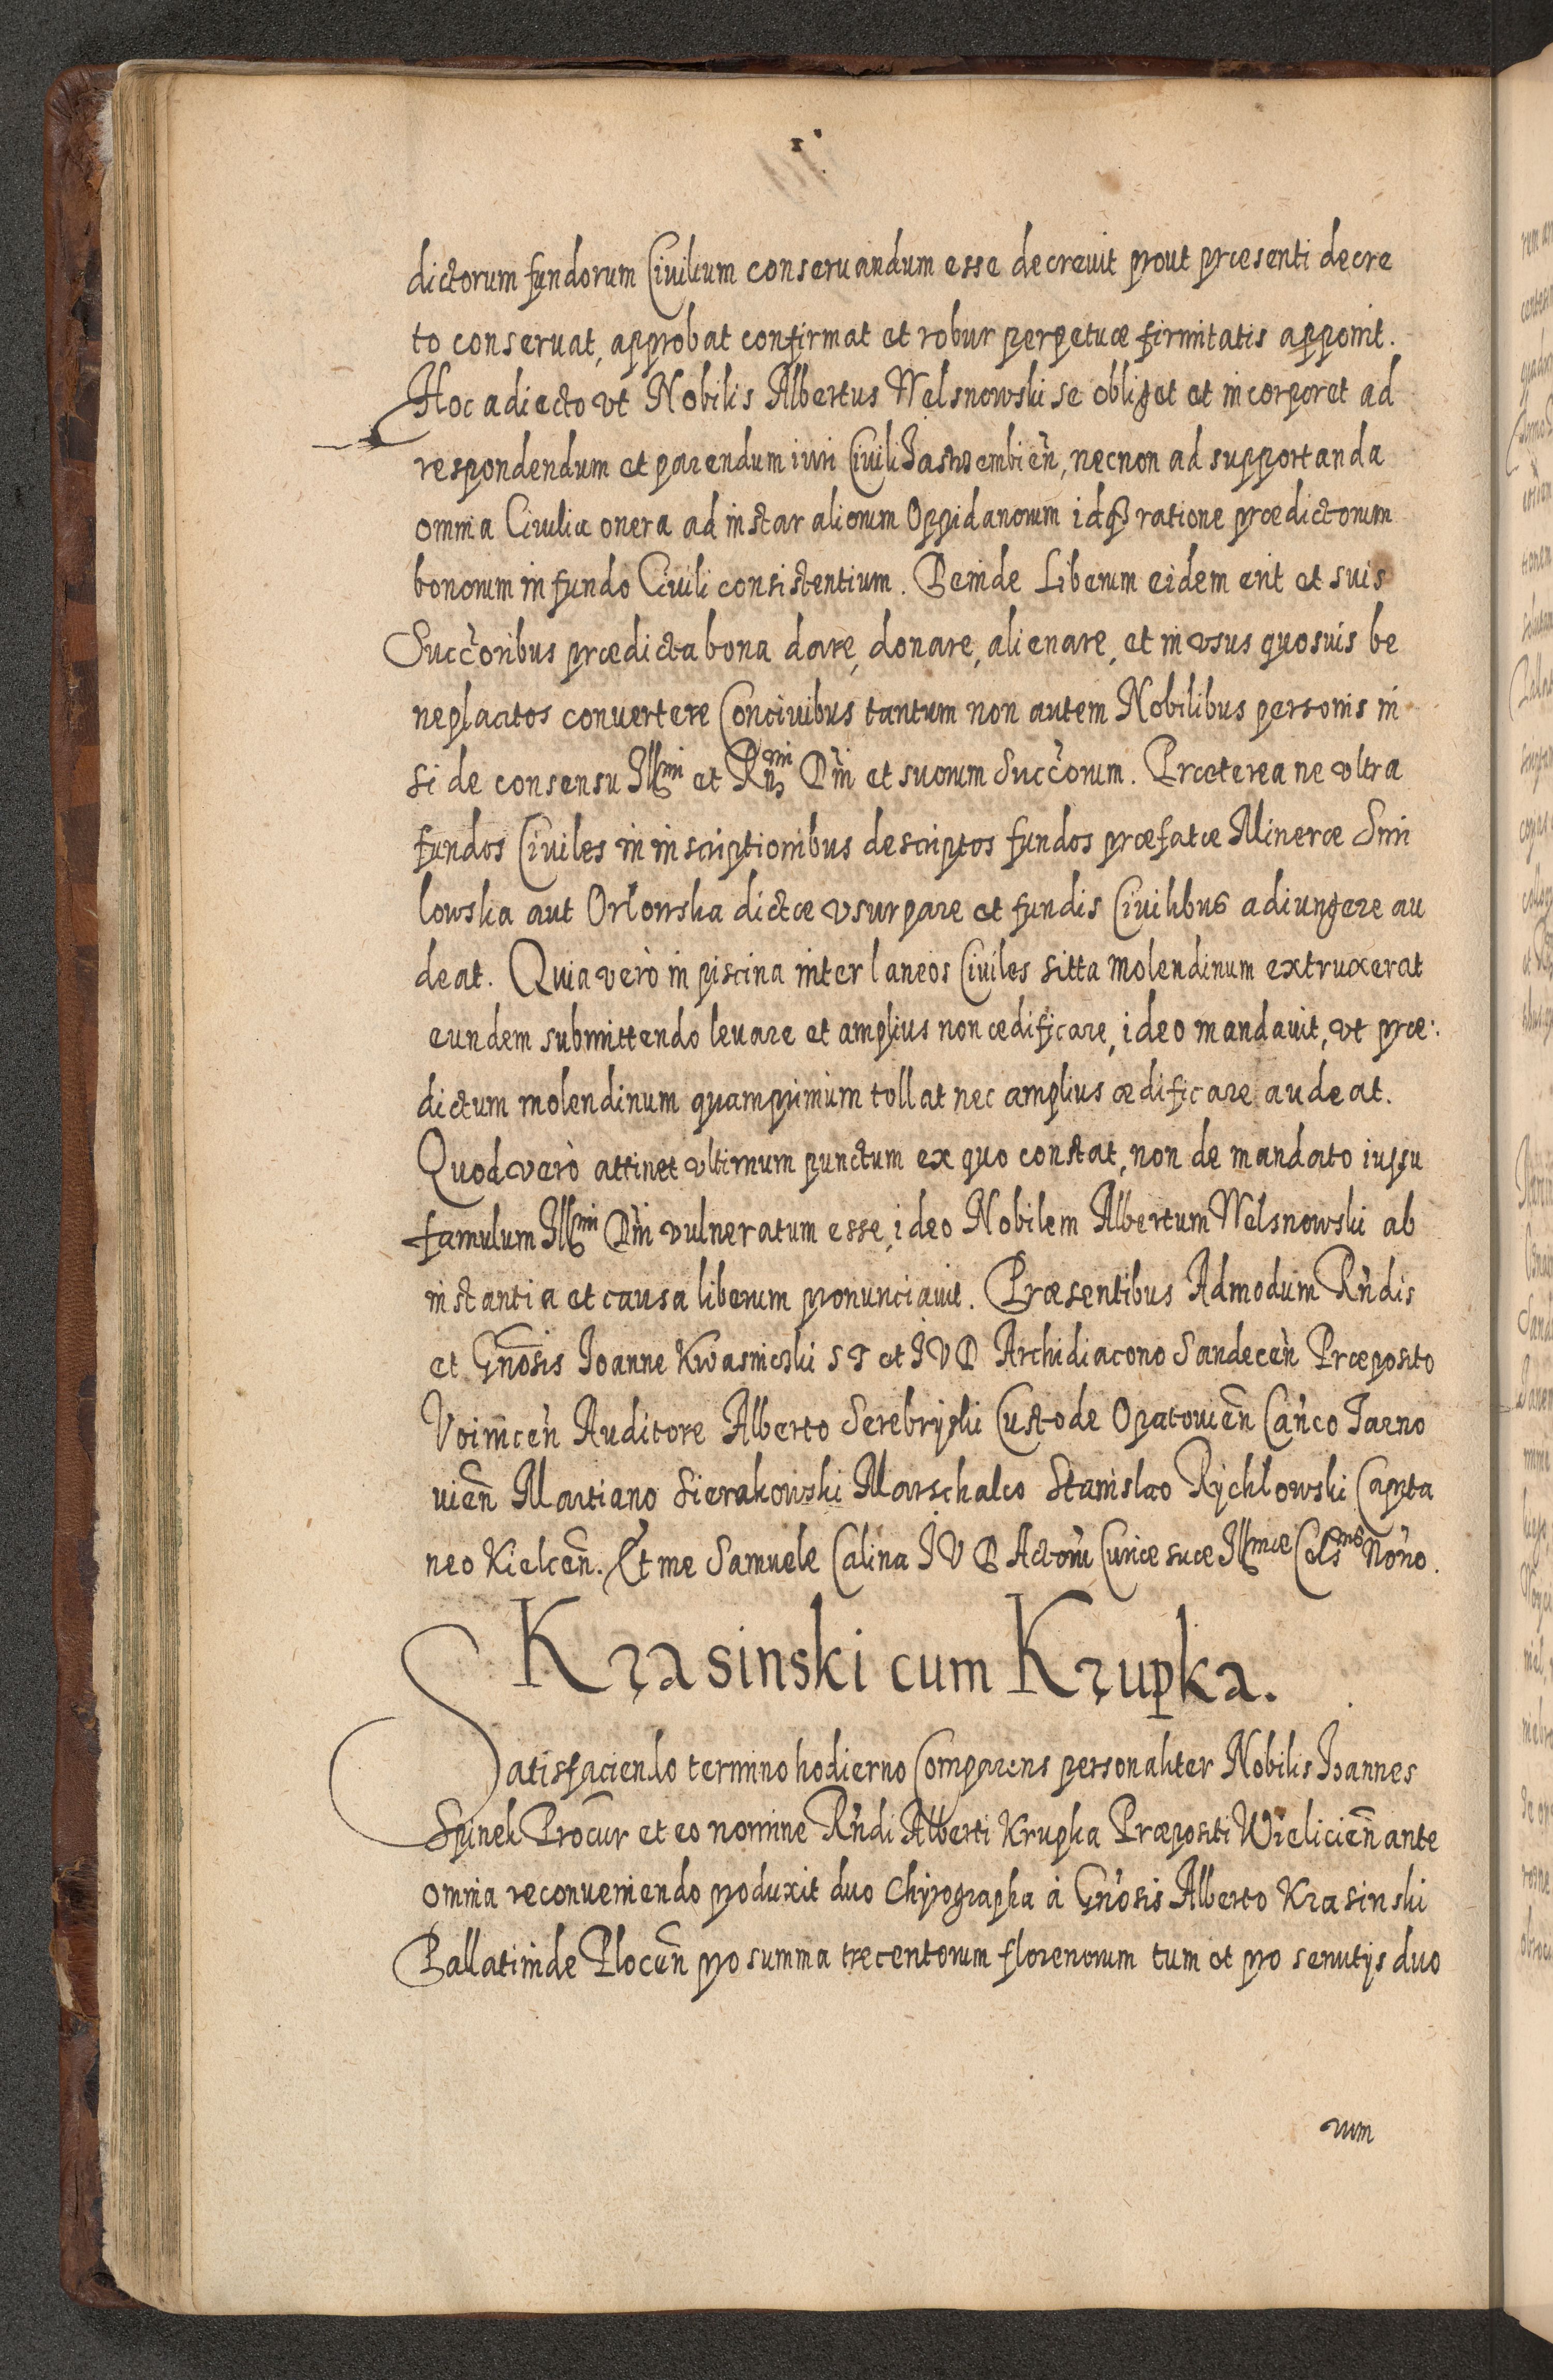 dictorum fundorum Civilium conseruandum esse decreuit prout præsenti decre
to conseruat, approbat confirmat et robur perpetuæ firmitatis apponit.
Hoc adiecto vt Nobilis Albertus Welsnowski se obliget et incorporet ad
respondendum et parendum iuri Civili Jastrzembień, necnon ad supportanda
omnia Civilia onera ad instar aliorum Oppidanorum idq3 ratione prædictorum
bonorum in fundo Civili consistentium. Deinde Liberum eidem erit et suis
Succ̃oribus prædicta bona dare, donare, alienare, et in vsus quosuis be
neplacitos conuertere Conciuibus tantum non autem Nobilibus personis ni
si de consensu Illmi et Rn̄dmi Dn̄i et suorum Succ̃orum. Præterea ne vltra
fundos Civiles in inscriptionibus descriptos fundos præfatæ Mineræ Smi
lowska aut Orlowska dictæ vsurpare et fundis Civilibus adiungere au
deat. Quia verò in piscina inter laneos Civiles sitta molendinum extruxerat
eundem submittendo leuare et amplius non ædificare, ideo mandauit, vt præ:
dictum molendinum quamprimùm tollat nec amplius ædificare audeat.
Quod verò attinet vltimum punctum ex quo constat, non de mandato iussu
famulum Illmi Dn̄i vulneratum esse, ideo Nobilem Albertum Welsnowski ab
instantia et causa liberum pronunciauit. Præsentibus Admodum Rn̄dis
et Gn̄osis Ioanne Kwasnicski S T et I V D Archidiacono Sandecen̄ Præposito
Voinicen̄ Auditore Alberto Serebryski Custode Opatouien̄ Can̄co Tarno
uien̄ Martiano Sierakowski Marschalco Stanislao Rychlowski Capita
neo Kielcen̄. Et me Samuele Calina I V D Actorū Curiæ suæ Illmæ Celsnis Nor̃io.
Krasinski cum Krupka.
Satisfaciendo termino hodierno Comparens personaliter Nobilis Ioannes
Spinek Procur̃ et eo nomine Rn̄di Alberti Krupka Præpositi Wielicien̄ ante
omnia reconueniendo produxit duo Chyrographa à Gn̄osis Alberto Krasinski
Pallatinide Plocen̄ pro summa trecentorum florenorum tum et pro seruitijs duo
rum